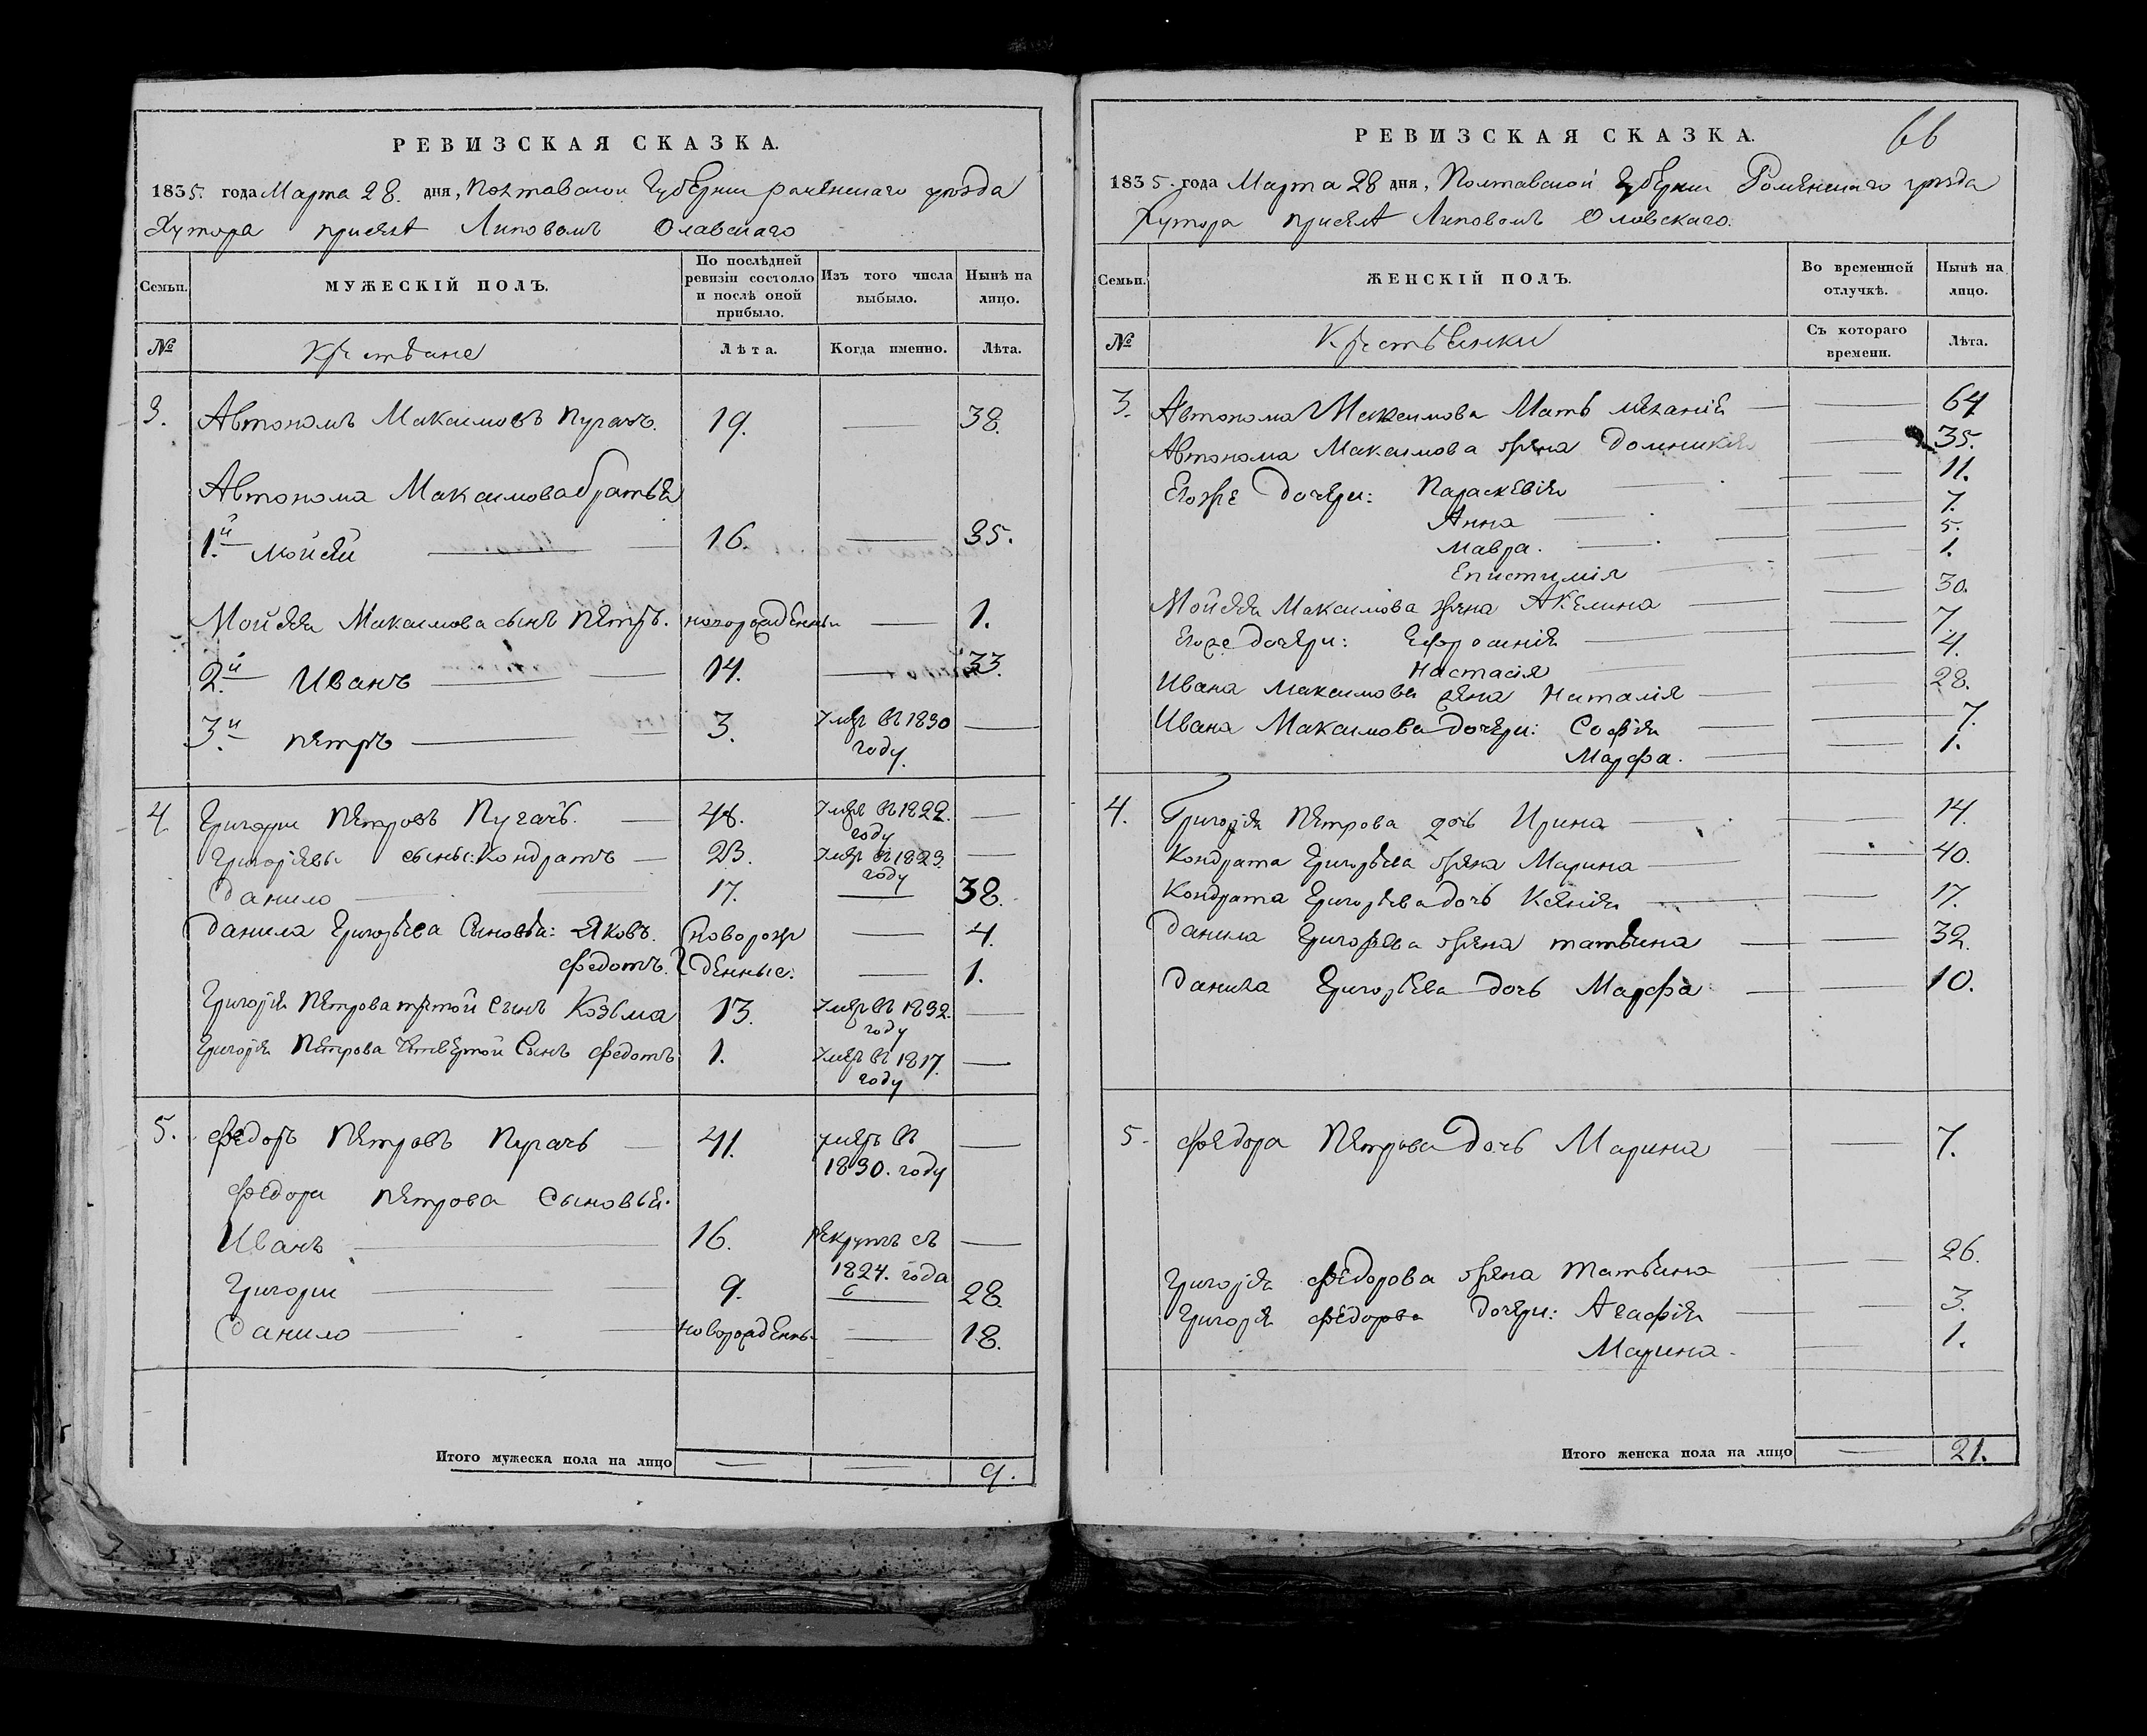 РЕВИЗСКАЯ СКАЗКА.
1835. года Марта 28. дня, Полтавской Губернии роменскаго уезда
Хутора приселѣ Липовомъ Олавскаго
Семьи.
МУЖЕСКІЙ ПОЛЪ.
По послѣдней ревизіи состояло и послѣ оной прибыло.
Изъ того числа выбыло.
Нынѣ на лицо.
№
Крестьяне
Лѣта.
Когда именно.
Лѣта.
3. Автономъ Максимовъ Пугачъ. 19. — 38.
Автонома Максимова братья
1.й Мойсей — 16. — 35.
Мойсея Максимова сынъ Петръ. новорожденный — 1.
2.й Иванъ — 14. — 33.
3.й Петръ — 3. умеръ въ 1830 —
году.
4. Григории Петровъ Пугачъ. — 48. умеръ въ 1822. —
году
Григорьевы сыны: Кондратъ — 23. умеръ въ 1823. —
году
Данило — 17. — 38.
Данила Григорьева Сыновья: Яковъ. новорож — 4.
Федотъ. денные. — 1.
Григорія Петрова третой Сынъ Козьма 13. умеръ въ 1832. —
году
Григорія Петрова Четвертой Сынъ Федотъ 1. умеръ въ 1817. —
году
5. Федоръ Петровъ Пугачъ — 41. умеръ въ —
1830. году
Федора Петрова Сыновья.
Иванъ — 16. рекрутъ съ —
1824. года
Григории — 9. — 28.
Данило — новорожденный — 18.
Итого мужеска пола на лицо — — 9.
66
РЕВИЗСКАЯ СКАЗКА.
1835. года Марта 28 дня, Полтавской Губернии Роменскаго уезда
Хутора приселѣ Липовомъ Оловскаго.
Семьи.
ЖЕНСКІЙ ПОЛЪ.
Во временной отлучкѣ.
Нынѣ на лицо.
№
Крестьянки
Съ котораго времени.
Лѣта.
3. Автонома Максимова Мать Меланія — — 64
Автонома Максимова жена Домникія — 35.
Егоже дочери: Параскевія — — 11.
Анна — — 7.
Мавра. — — 5.
Епистимія — — 1.
Мойсея Максимова жена Акелина — — 30.
Егоже дочери: Ефросинія — — 7.
Настасія — — 4.
Ивана Максимова жена Наталія — — 28.
Ивана Максимова дочери: Софія — — 7.
Марфа. — — 1.
4. Григорія Петрова дочь Ирина — — 14.
Кондрата Григорьева жена Марина — — 40.
Кондрата Григорьева дочь Ксенія — — 17.
Данила Григорьева жена татьяна — — 32.
Данила Григорьева дочь Марфа — — 10.
5. Федора Петрова дочь Марина — — 7.
Григорія Федорова жена Татьяна — — 26.
Григорія Федорова дочери: Агафія — — 3.
Марина. — 1.
Итого женска пола на лицо — 21.